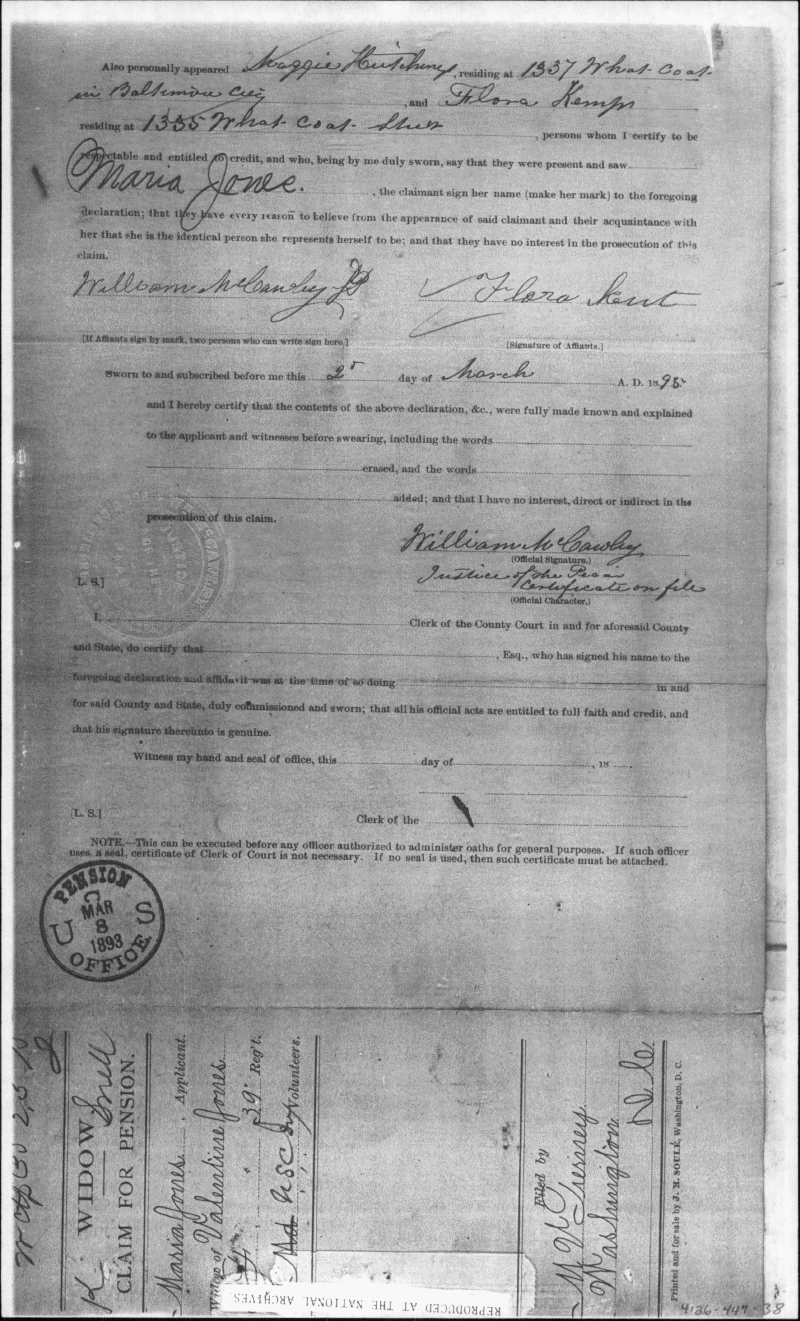 Also personally appeared Maggie Hutchins, residing at 1337 What-Coat-
in Baltimore City, and Flora Kemp
residing at 1335 What-Coat-Street, persons whom I certify to be
respectable and entitled to credit, and who, being by me duly sworn, say that they were present and saw
Maria Jones., the claimant sign her name (make her mark) to the foregoing
declaration; that they have every reason to believe from the appearance of said claimant and their acquaintance with
her that she is the identical person she represents herself to be; and that they have no interest in the prosecution of this
claim.
William McCawley JP Flora Kent
[If Affiants sign by mark, two persons who can write sign here.] [Signature of Affiants.]
Sworn to and subscribed before me this 2 day of March A. D. 1893
and I hereby certify that the contents of the above declaration, &c., were fully made known and explained
to the applicant and witnesses before swearing, including the words
erased, and the words
added; and that I have no interest, direct or indirect in the
prosecution of this claim.
William McCawley
(Official Signature.)
[L. S.] Justice of the Peace
Certificate on file
(Official Character,)
I, Clerk of the County Court in and for aforesaid County
and State, do certify that , Esq., who has signed his name to the
foregoing declaration and affidavit was at the time of so doing in and
for said County and State, duly commissioned and sworn; that all his official acts are entitled to full faith and credit, and
that his signature thereunto is genuine.
Witness my hand and seal of office, this day of , 18
[L. S.] Clerk of the
NOTE.—This can be executed before any officer authorized to administer oaths for general purposes. If such officer
uses a seal, certificate of Clerk of Court is not necessary. If no seal is used, then such certificate must be attached.
PENSION
MAR
8
1893
U S
OFFICE
K. WIDOW
CLAIM FOR PENSION.
Maria Jones, Applicant.
Widow of Valentine Jones
39" Reg't.
Md USC Volunteers.
Filed by
Washington DC
Printed and for sale by J. H. SOULÉ, Washington, D. C.
REPRODUCED AT THE NATIONAL ARCHIVES
4126-447-38